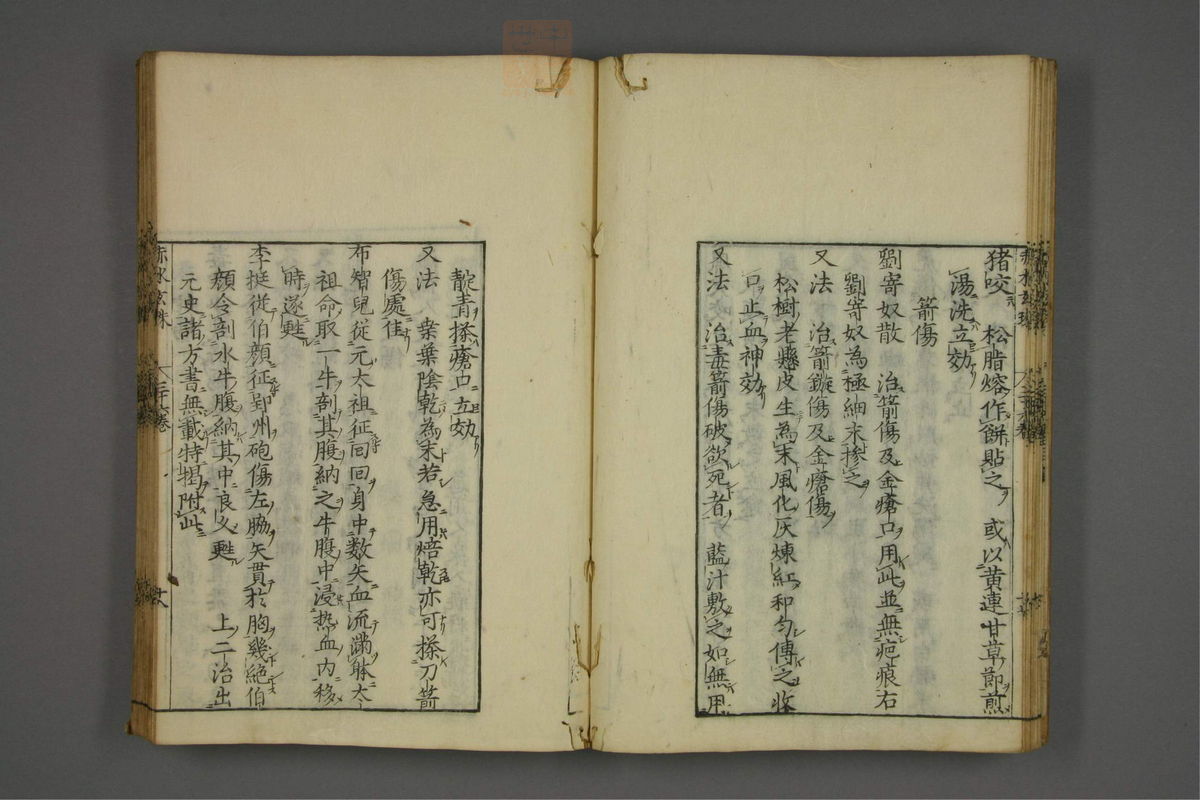 猪咬　松脂熔作餅貼之　或以黄連甘草節煎
湯洗立効
箭傷
劉寄奴散　治箭傷及金瘡口用此並無疤痕右
劉寄奴為極細末摻之
又法　治箭鏃傷及金瘡傷
松樹老懸皮生為末風化灰煉紅和勻傅之收
口止血神効
又法　治毒箭傷破欲死者　藍汁敷之如無用
靛青搽瘡口立効
又法　桒葉陰乾為末若急用焙乾亦可搽刀箭
傷處佳
布智兒從元太祖征回回身中数矢血流滿躰太
祖命取一牛剖其腹納之牛腹中浸热血内移
時遂甦
李挺従伯顔征郢州砲傷左脇矢貫於胸幾絶伯
顔令剖水牛腹納其中良久甦　上二治出
元史諸方書無載特揭附此
赤水玄珠